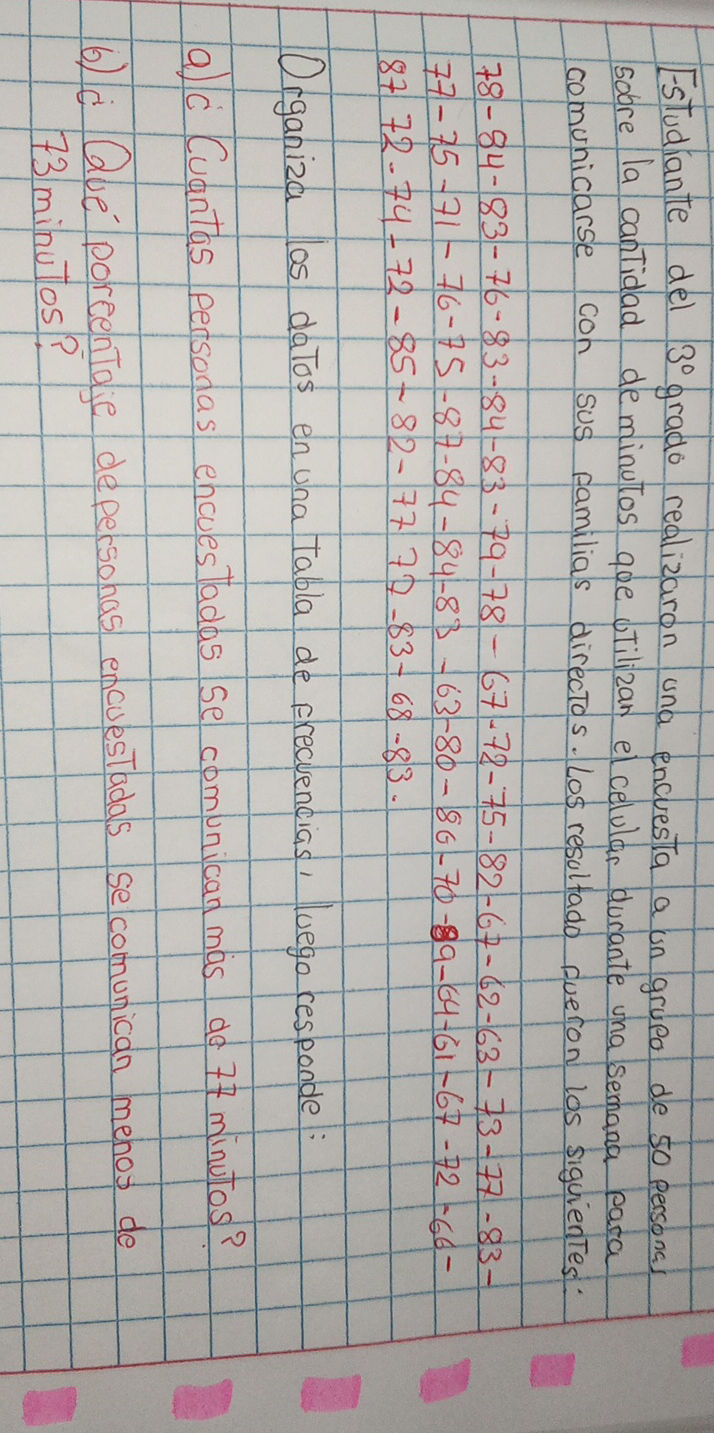 Estudiante del 3º grado realizaron una encuesta a un grupo de 50 personas
sobre la cantidad de minutos que utilizan el celular durante una semana para
comunicarse con sus familias directos. Los resultado fueron los siguientes:
78-84-83-76-83-84-83-79-78-67-72-75-82-67-62-63-73-77-83-
77-75-71-76-75-87-84-84-83-63-80-86-70-89-64-61-67-72-66-
87 72-74-72-85-82-77 72-83-68-83.
Organiza los datos en una tabla de frecuencias, luego responde:
a) ¿ Cuantas personas encuestadas se comunican más de 77 minutos?
b) ¿ Qué porcentaje de personas encuestadas se comunican menos de
73 minutos?